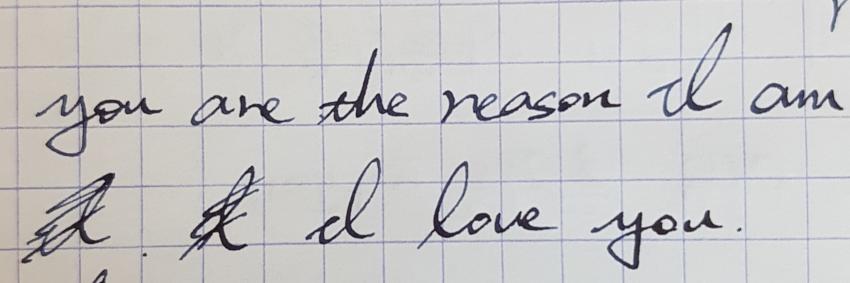 you are the reason I am
I love you.